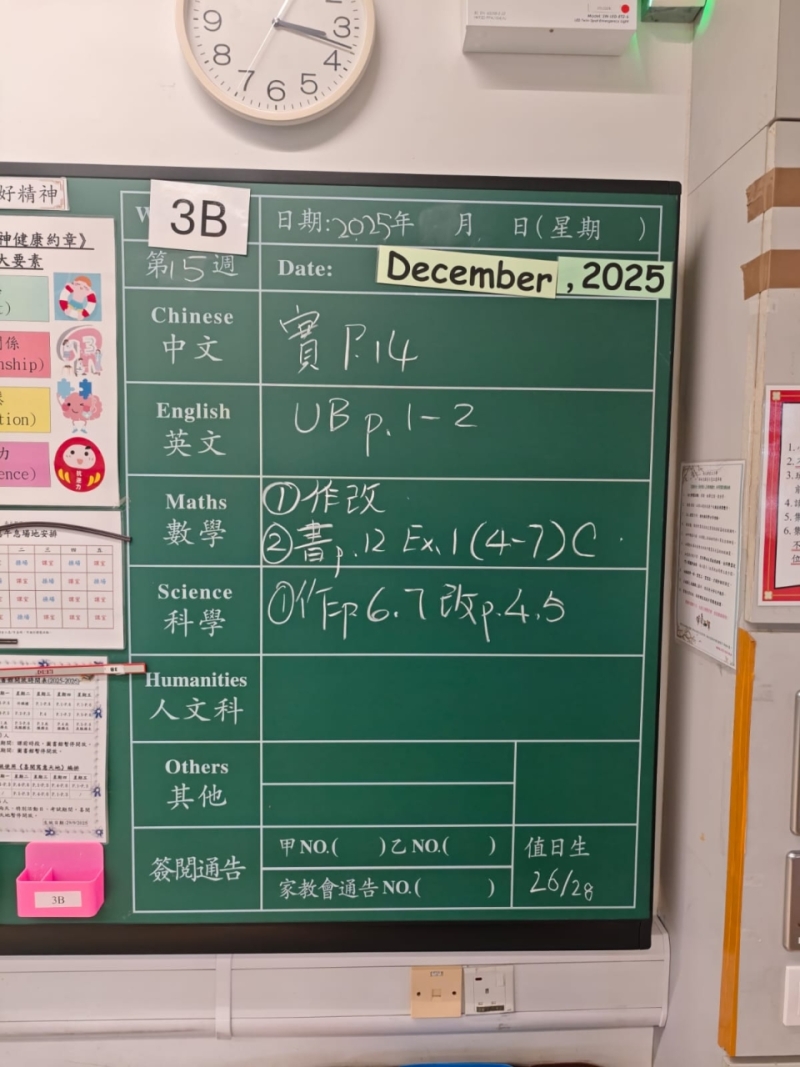 9 3
8 4
7 6 5
好精神
3B
日期:2025年 月 日(星期 )
第15週
Date:
December ,2025
神健康約章》
大要素
Chinese
中文
實 P.14
English
英文
UB p.1-2
Maths
數學
①作改
②書p.12 Ex.1(4-7)C
Science
科學
①作p6.7改p.4.5
Humanities
人文科
Others
其他
簽閱通告
甲NO.( )乙NO.( )
家教會通告NO.( )
值日生
26/28
係
nship)
tion)
力
ence)
二 三 四 五
3B